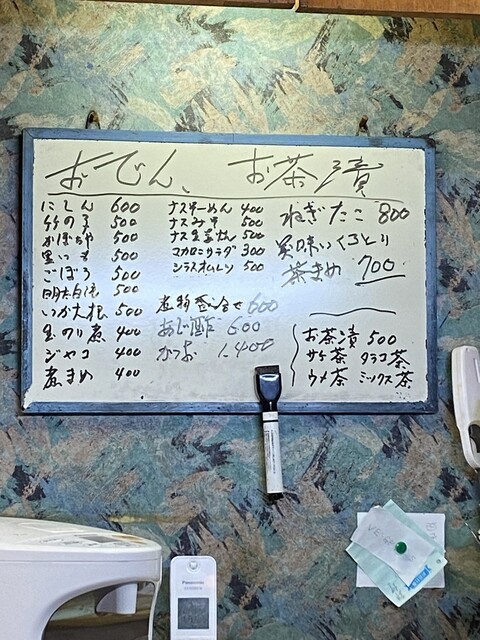 おでん、お茶漬
にしん 600
竹の子 500
かぼちゃ 500
里いも 500
ごぼう 500
明太白滝 500
いか大根 500
生のり煮 400
ジャコ 400
煮まめ 400
ナスそーめん 400
ナスみそ 500
ナス生姜 500
マカロニサラダ 300
シラスオムレツ 500
600
あじ酢 600
かつお 1,400
ねぎたこ 800
美味いくろとり
茶まめ 700
お茶漬 500
サケ茶 タラコ茶
ウメ茶 ミックス茶
Panasonic